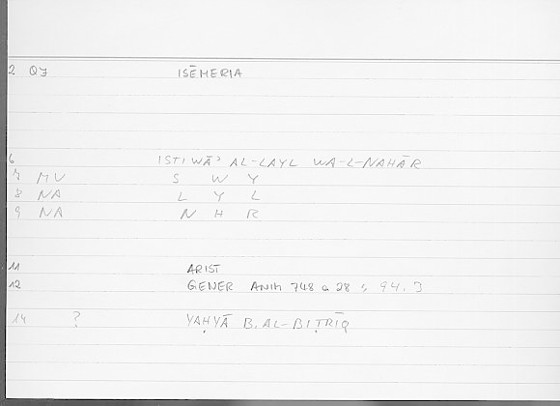 2 QJ ISĒMERIA
6 ISTIWĀʾ AL-LAYL WA-L-NAHĀR
7 MV S W Y
8 NA L Y L
9 NA N H R
11 ARIST
12 GENER ANIM 748 a 28 ; 94.3
14 ? YAḤYĀ B. AL-BIṬRĪQ